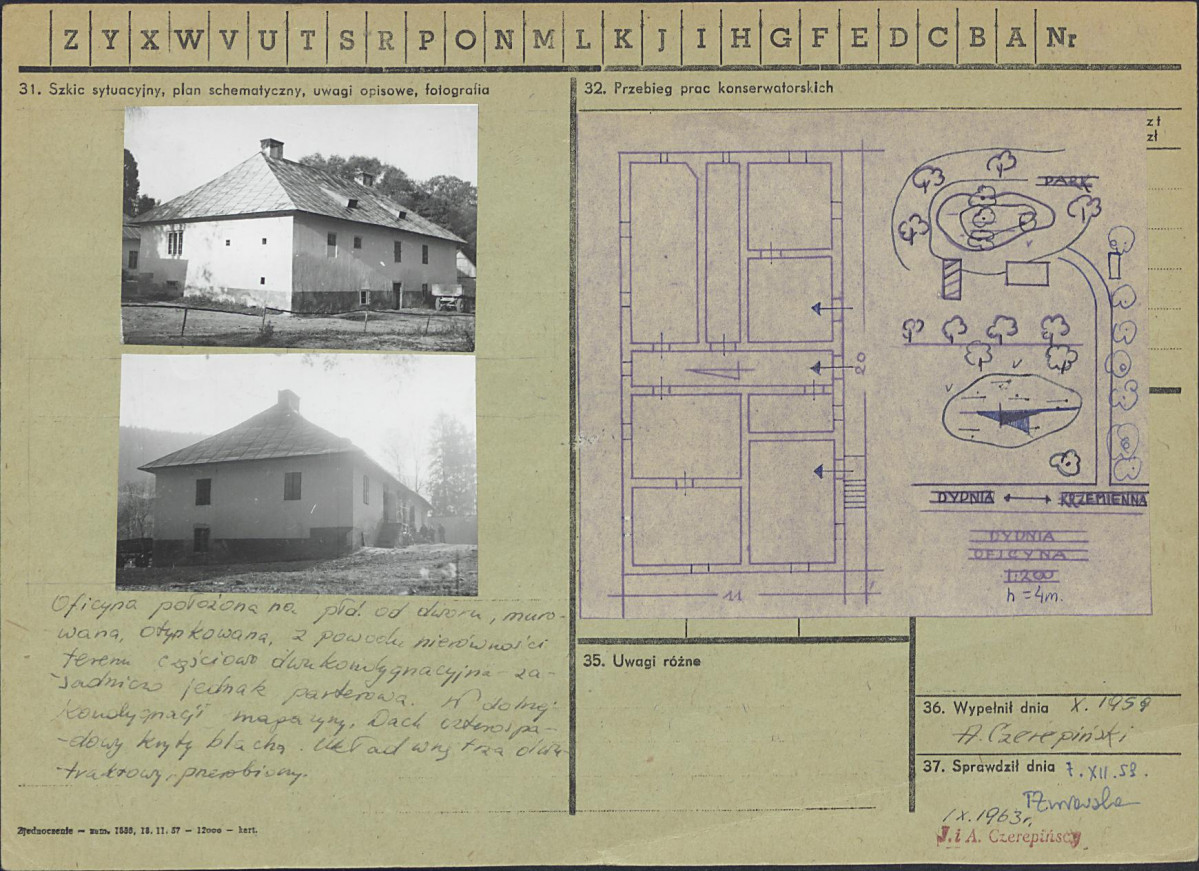 Z Y X W V U T S R P O N M L K J I H G F E D C B A Nr
31. Szkic sytuacyjny, plan schematyczny, uwagi opisowe, fotografia
Oficyna położona na płd. od dworu, muro-
wana, otynkowana, z powodu nierówności
terenu częściowo dwukondygnacyjna - za-
sadniczo jednak parterowa. W dolnej
kondygnacji magazyny. Dach czterospa-
dowy kryty blachą. Układ wnętrza dwu-
traktowy, przerobiony.
Zjednoczenie — zam. 1586, 18. 11. 57 — 12000 — kart.
32. Przebieg prac konserwatorskich
zł
zł
20
11
PARK
DYDNIA
KRZEMIENNA
DYDNIA
OFICYNA
1:200
h = 4m.
35. Uwagi różne
36. Wypełnił dnia X. 1959
A. Czerepiński
37. Sprawdził dnia 7. XII. 59.
IX. 1963 r.
J. i A. Czerepińscy